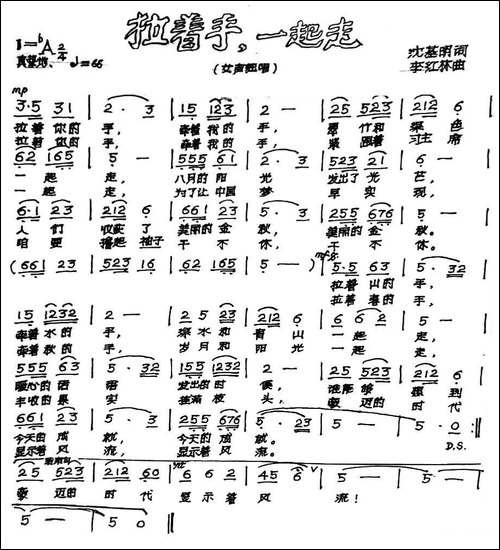 拉着手，一起走
1=♭A 2/4 ♩=66
真挚地、
（女声独唱）
沈基明词
李红林曲
mp
3·5 31 | 2·3 | 15 123 | 2 — | 25 523 | 212 6
拉着你的手， 牵着我的手， 翠竹和绿色
拉着您的手， 牵着我的手， 紧跟着习主席
62 165 | 5 — | 555 61 | 2·3 | 523 21 | 6 —
一起走， 八月的阳光 发出了光芒，
一起走， 为了让中国梦 早实现，
6·1 23 | 212 6 | 661 23 | 5·3 | 255 676 | 5 —
人们收获了 美丽的金秋， 美丽的金秋。
咱要撸起袖子 干不休， 干不休。
(661 23 | 523 16 | 62 165 | 5 —) | 5·5 63 | 5·32
mf
拉着山的手，
拉着春的手，
15 1232 | 2 — | 25 523 | 212 6 | 662 | 5 —
牵着水的手， 绿水和青山一起走，
牵着秋的手， 岁月和阳光一起走，
555 63 | 5·32 | 155 1232 | 2 — | 25 523 | 212 6·
暖心的话语 发出的时候， 谁能够
丰收的果实 挂满枝头， 豪迈的时代
661 23 | 5·3 | 255 676 | 5·23 | 5 — | 5·0 :‖
今天的成就， 今天的成就。
显示着风流， 显示着风流。
D.S.
25 523 | 212 60 | 662 | 45 6 | 5 — | 5 —
豪迈的时代 显示着风流！
5 — | 5 0 ‖